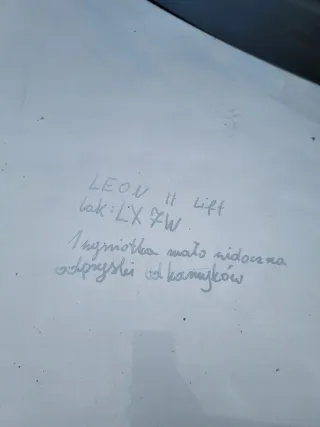 LEON II Lift
lak: LX7W
1 wgniotka mało widoczna
odpryski od kamyków